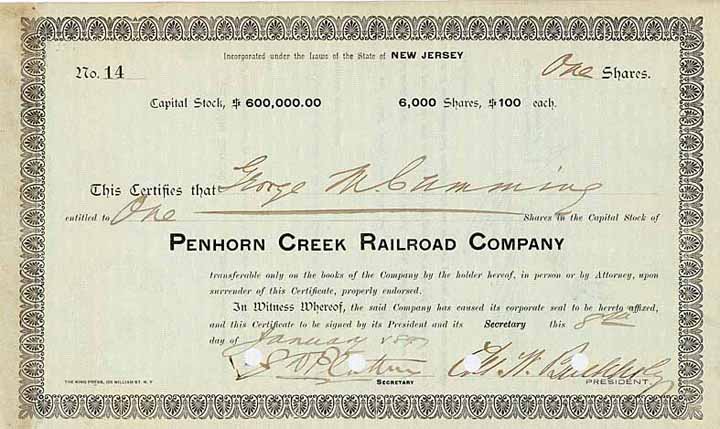 Incorporated under the Laws of the State of NEW JERSEY
No. 14 One Shares.
Capital Stock, $600,000.00 6,000 Shares, $100 each.
This Certifies that George M. Cumming
entitled to One Shares in the Capital Stock of
PENHORN CREEK RAILROAD COMPANY
transferable only on the books of the Company by the holder hereof, in person or by Attorney, upon
surrender of this Certificate, properly endorsed.
In Witness Whereof, the said Company has caused its corporate seal to be hereto affixed,
and this Certificate to be signed by its President and its Secretary this
day of January
SECRETARY PRESIDENT.
THE KING PRESS, 105 WILLIAM ST. N. Y